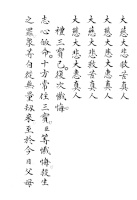 大慈大悲救苦真人
大慈大悲大惠真人
大慈大悲救苦真人
大慈大悲大惠真人
禮三寶已。後次懺悔
志心皈命。十方常住三寶。臣等懺悔殺生
之罪。眾等自從無量劫來。至於今日。父母